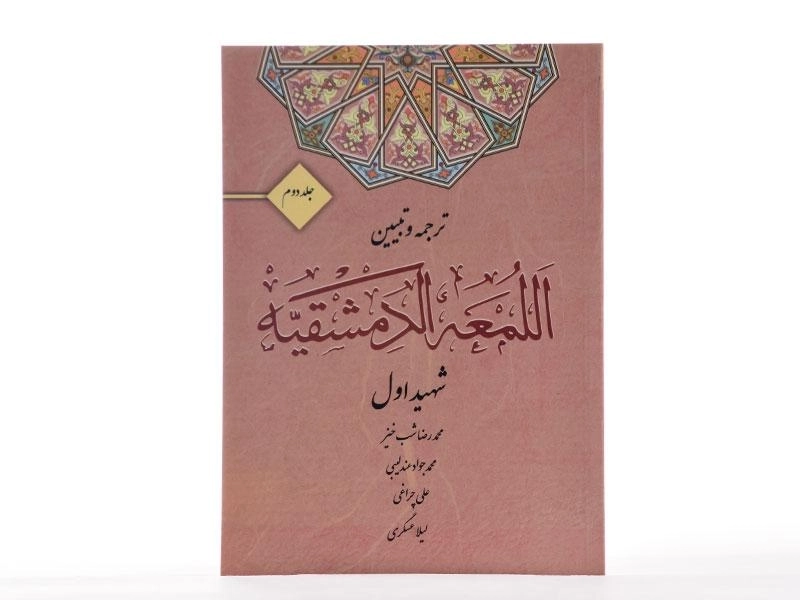 جلد دوم
ترجمه و تبیین
اَللُمعَه الدِمَشقیَّه
شهید اول
محمدرضا شب خیز
محمدجواد عندلیبی
علی چراغی
لیلا عسگری